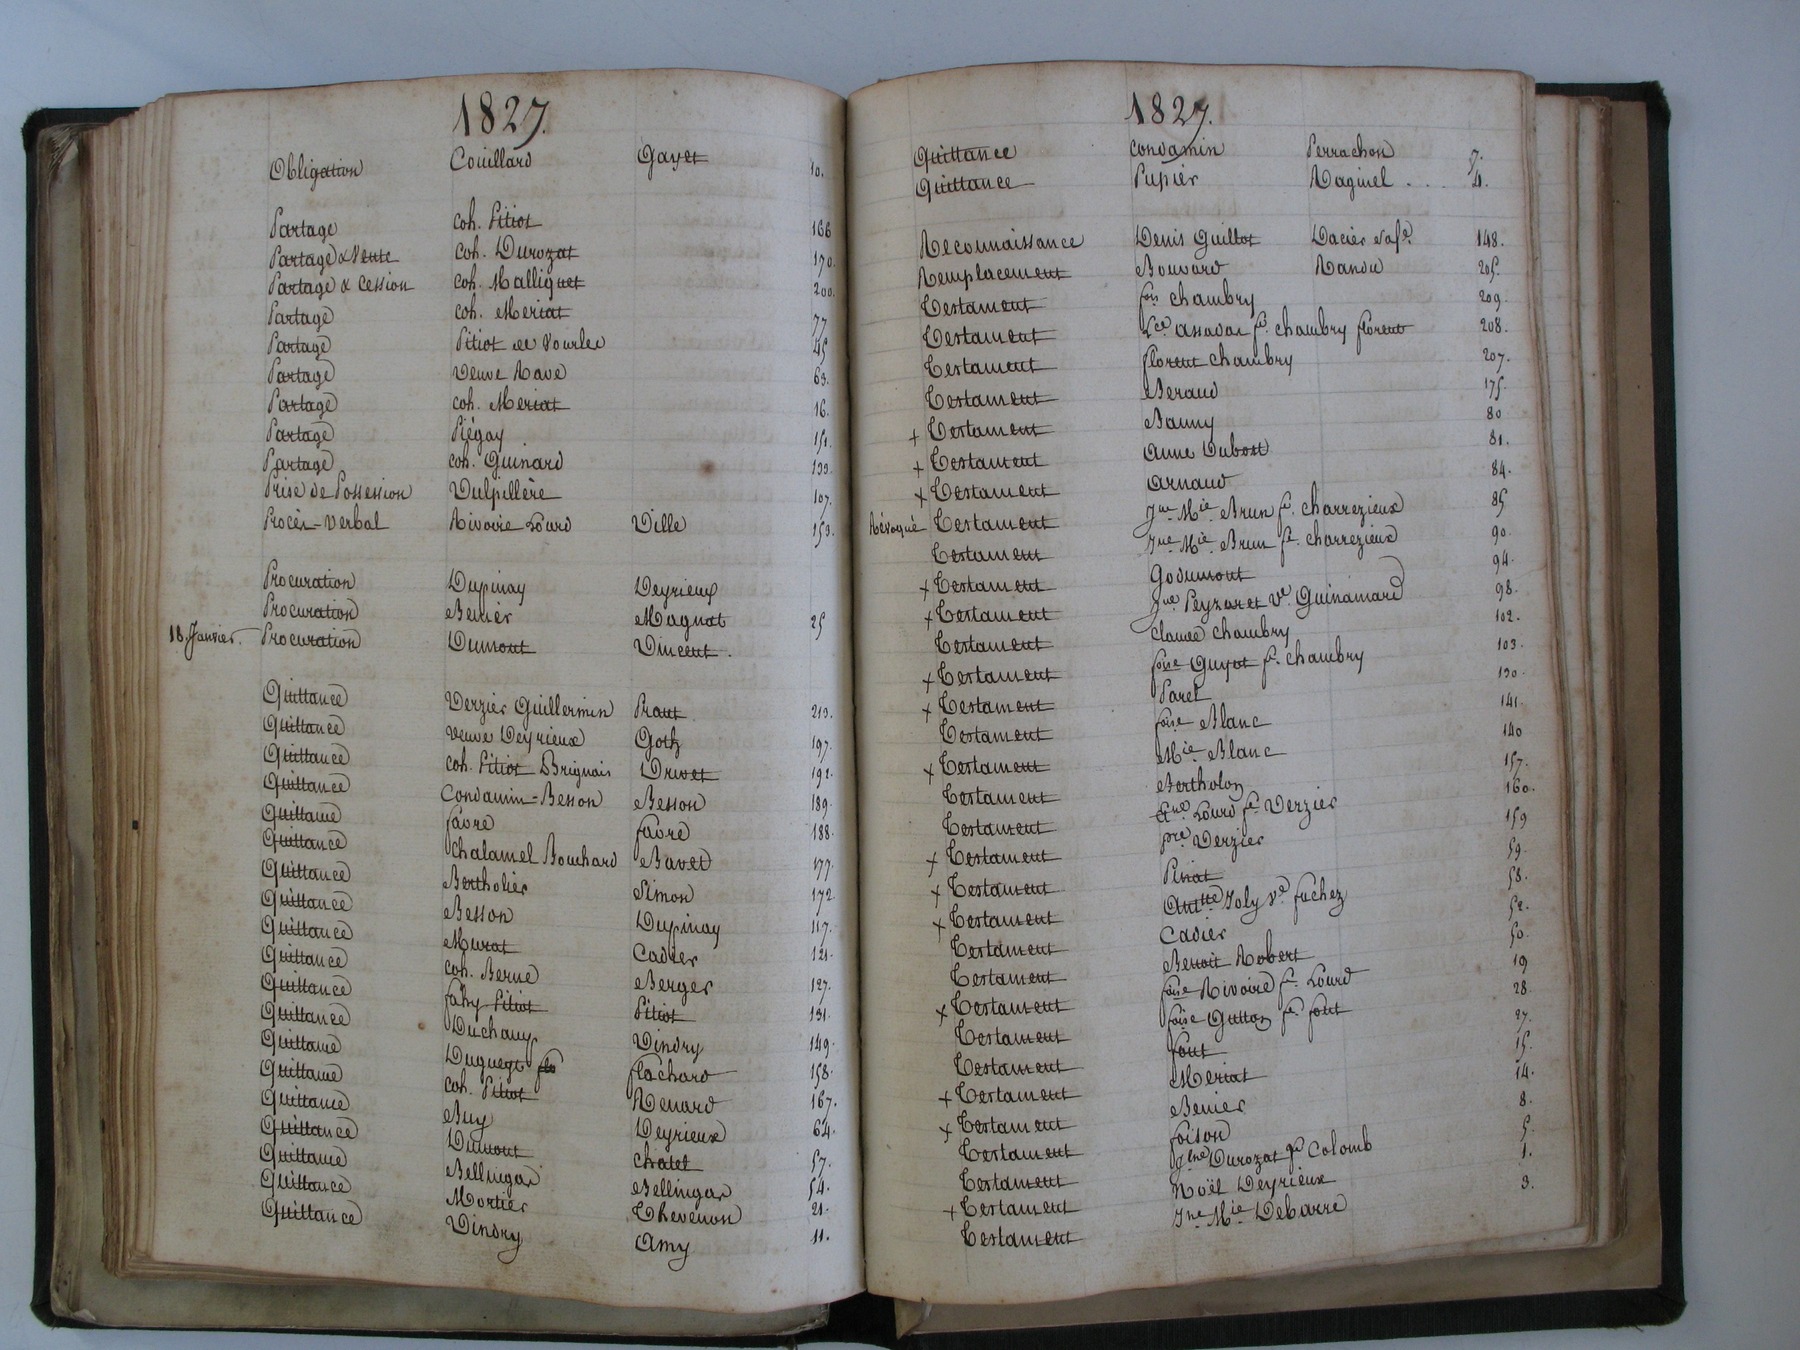 1827.
Obligation Couillard Gayet 10.
Partage coh. Pitiot 166
Partage & Vente coh. Durozat 170.
Partage & Cession coh. Malliquet 200.
Partage coh. Meriat 77
Partage Pitiot de Vourles 45
Partage Veuve Rave 63.
Partage coh. Meriat 16.
Partage Piégay 151.
Partage coh. Guinard 133.
Prise de Possession Vulpillère 107.
Procès-Verbal Rivoire Lourd Ville 153.
Procuration Dupinay Deyrieux
Procuration Benier Magnat 25
18. Janvier. Procuration Dumont Vincent.
Quittance Verzier Guillermin Praut 213.
Quittance Veuve Deyrieux Goth 197.
Quittance coh. Pitiot Brignais Drivet 192.
Quittance Condamin-Besson Besson 189.
Quittance favre favre 188.
Quittance Chalamel Bouchard Bavet 177.
Quittance Bertholier Simon 172
Quittance Besson Dupinay 117.
Quittance Murat Cadier 121.
Quittance coh. Berne Berger 127.
Quittance fahy Pitiot Pitiot 131.
Quittance Duchamp Vindry 149.
Quittance Duguegt flachard 158.
Quittance coh. Pitiot Renard 167.
Quittance Buy Deyrieux 64.
Quittance Dumont chatel 57.
Quittance Bellingar Bellingar 54.
Quittance Mortier Thevenon 21.
Quittance Vindry Amy 11.
1827.
Quittance Condamin Perrachon 7.
Quittance Pupier Raginel . . . 4.
Reconnaissance Denis Guillot 148.
Remplacement Bouvard Randu 205.
Testament fois chambry 209.
Testament assadas fe. chambry florent 208.
Testament florent chambry 207.
Testament Beraud 175.
+ Testament Banny 80
+ Testament Anne Dubost 81.
+ Testament Arnaud 84.
Révoqué Testament Jne Mie Brun fe. charrezieux 85
Testament Jne Mie Brun fe. charrezieux 90.
+ Testament Godumont 94.
+ Testament Jne Peyzaret Ve. Guinamard 98.
Testament Claude chambry 102.
+ Testament foise Guyot fe. chambry 103.
+ Testament Paret 130.
Testament foise Blanc 141.
+ Testament Mie Blanc 140
Testament Bertholon 157.
Testament Lourd fe Verzier 160.
+ Testament pre Verzier 159
+ Testament Piriat 59.
+ Testament Joly Ve fachez 58.
Testament Cadier 52.
Testament Benoit Robert 50.
+ Testament foise Rivoire fe. Lourd 19
Testament foise Gutton fe. font 28.
Testament font 27.
+ Testament Meriat 15.
+ Testament Benier 14.
Testament foison 8.
Testament Durozat fe Colomb 5.
+ Testament Noël Deyrieux 1.
Testament Jne Mie Debarre 3.